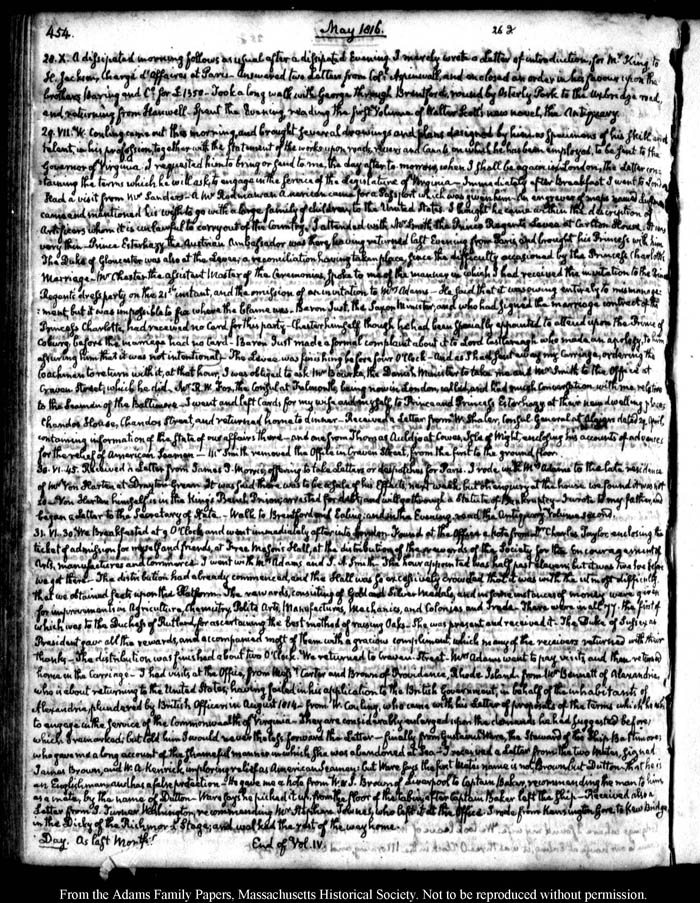 454. May 1816.
28. X. A dissipated morning follows as usual after a dissipated Evening. I merely wrote a Letter of introduction, for Mr King to
H. Jackson, Chargé d'Affaires at Paris. Answered two Letters from Coll. Aspinwall, and enclosed an order in his favour upon the
brothers Baring and Co. for £1350 — Took a long walk with George through Brentford, round by Osterly Park to the Uxbridge road,
and returning from Hanwell — Spent the Evening reading the first Volume of Walter Scott's new novel, the Antiquary.
29. VII. W. Conling came out this morning, and brought several drawings and plans designed by him as specimens of his skill and
talent, in his profession, together with the Statement of the works upon roads, rivers and Canals on which he has been employed, to be sent to the
Governor of Virginia. I requested him to bring or send to me, the day after to morrow, when I shall be again in London, the Letter con-
taining the terms which he will ask, to engage in the service of the Legislature of Virginia — Immediately after Breakfast I went to London
Had a visit from Mr Sanders. A Mr Rodman an American came for a Passport which was given him. An engraver of maps named
came and mentioned his wish to go with a large family of children, to the United States. I thought he came within the description of
Artificers whom it is unlawful to carry out of the Country. I attended with Mr Smith the Prince Regent's Levee at Carlton House. It was
very thin — Prince Esterhazy the Austrian Ambassador was there, having returned last Evening from Paris, and brought his Princess with him
The Duke of Gloucester was also at the Levee; a reconciliation having taken place, since the difficulty occasioned by the Princess Charlotte's
Marriage. Mr Chester the assistant Master of the Ceremonies, spoke to me of the manner in which I had received the invitation to the Prince
Regent's dress party on the 21st instant, and the omission of an invitation to Mrs Adams — He said that it was owing entirely to mismanage-
:ment, but it was impossible to fix where the blame was. Baron Just, the Saxon Minister, and who had signed the marriage contract of the
Princess Charlotte, had received no Card for this party — Chester himself though he had been specially appointed to attend upon the Prince of
Coburg before the marriage had no Card — Baron Just made a formal complaint about it to Lord Castlereagh who made an apology, to him
assuring him that it was not intentional. The Levee was finishing before four O'Clock — And as I had sent away my Carriage, ordering the
Coachman to return with it, at that hour, I was obliged to ask Mr Bourke, the Danish Minister to take me and Mr Smith to the Office at
Craven Street; which he did. Mr R. W. Fox, the Consul at Falmouth, being now in London, called, and had much conversation with me, relative
to the Seamen of the Baltimore — I went and left Cards for my wife and myself to Prince and Princess Esterhazy at their new dwelling place,
Chandos House, Chandos Street, and returned home to dinner — Received a Letter from W. Shaler, Consul General at Algiers dated 29. April,
containing information of the State of our affairs there — and one from Thomas Auldjo at Cowes, Isle of Wight, enclosing his accounts of advances
for the relief of American Seamen — Mr Smith removed the Office in Craven Street, from the first to the ground floor.
30. VI. 45. Received a Letter from James J. Morris, offering to take Letters or despatches for Paris. I rode with Mrs Adams to the late residence
of Mr Von Harten at Drayton Green. It was said there was to be a sale of his Effects, next week, but on enquiry at the house we found it was not
so — Von Harten himself is in the King's Bench Prison, arrested for debt, and will go through a Statute of Bankruptcy — I wrote to my father, and
began a Letter to the Secretary of State — Walk to Brentford and Ealing, and in the Evening, read the Antiquary Volume second.
31. VI. 30. We Breakfasted at 9 O'Clock and went immediately after into London. Found at the Office a Note from Mr Charles Taylor, enclosing the
ticket of admission for myself and friends, at Free Mason's Hall, at the distribution of the rewards of the Society for the Encouragement of
Arts, manufactures and Commerce. I went with Mrs Adams and J. A. Smith. The hour appointed was half past eleven; but it was two before
we got there — The distribution had already commenced, and the Hall was so excessively crowded that it was with the utmost difficulty
that we obtained seats upon the Platform. The rewards, consisting of Gold and Silver Medals, and in some instances of money were given
for improvements in Agriculture, Chemistry, Polite Arts, Manufactures, Mechanics, and Colonies and Trade. There were in all 77. The first of
which was to the Duchess of Rutland, for ascertaining the best method of raising Oaks. She was present and received it. The Duke of Sussex as
President gave all the rewards, and accompanied most of them with a gracious compliment, which many of the receivers returned with their
thanks — The distribution was finished about two O'Clock. We returned to Craven Street. Mrs Adams went to pay visits and then returned
home in the Carriage. I had visits at the Office, from Carter and Brown of Providence, Rhode Island; from Wm Bennett of Alexandria,
who is about returning to the United States, having failed in his application to the British Government, in behalf of the inhabitants of
Alexandria plundered by British Officers in August 1814 — from W. Conling, who came with his Letter of proposals of the terms which he asks
to engage in the service of the Commonwealth of Virginia. They are considerably enlarged upon the demands he had suggested before,
which I remarked; but told him I would never the less forward the Letter — finally from Gustavus Ware, the Steward of the Ship Baltimore;
who gave me a long account of the shameful manner in which she was abandoned at Sea — I received a Letter from the two Mates, signed
James Brown, and W. A. Kenrick, imploring relief as American Seamen; but Ware says the first Mate's name is not Brown but Dutton — that he is
an Englishman and has a false protection — He gave me a Note from Wm J. Brown of Liverpool to Captain Baker, recommending the man to him
as a mate, by the name of Dutton — Ware says he picked it up, from the floor of the Cabin, after Captain Baker left the Ship — Received also a
Letter from J. Turner, Wilmington, recommending Mr Stephen Tournes, who left it at the Office. I rode from Kensington Gore to Kew Bridge,
in the Dicky of the Richmond Stage; and walked the rest of the way home.
Day. As last Month.
End of Vol. IV.
From the Adams Family Papers, Massachusetts Historical Society. Not to be reproduced without permission.